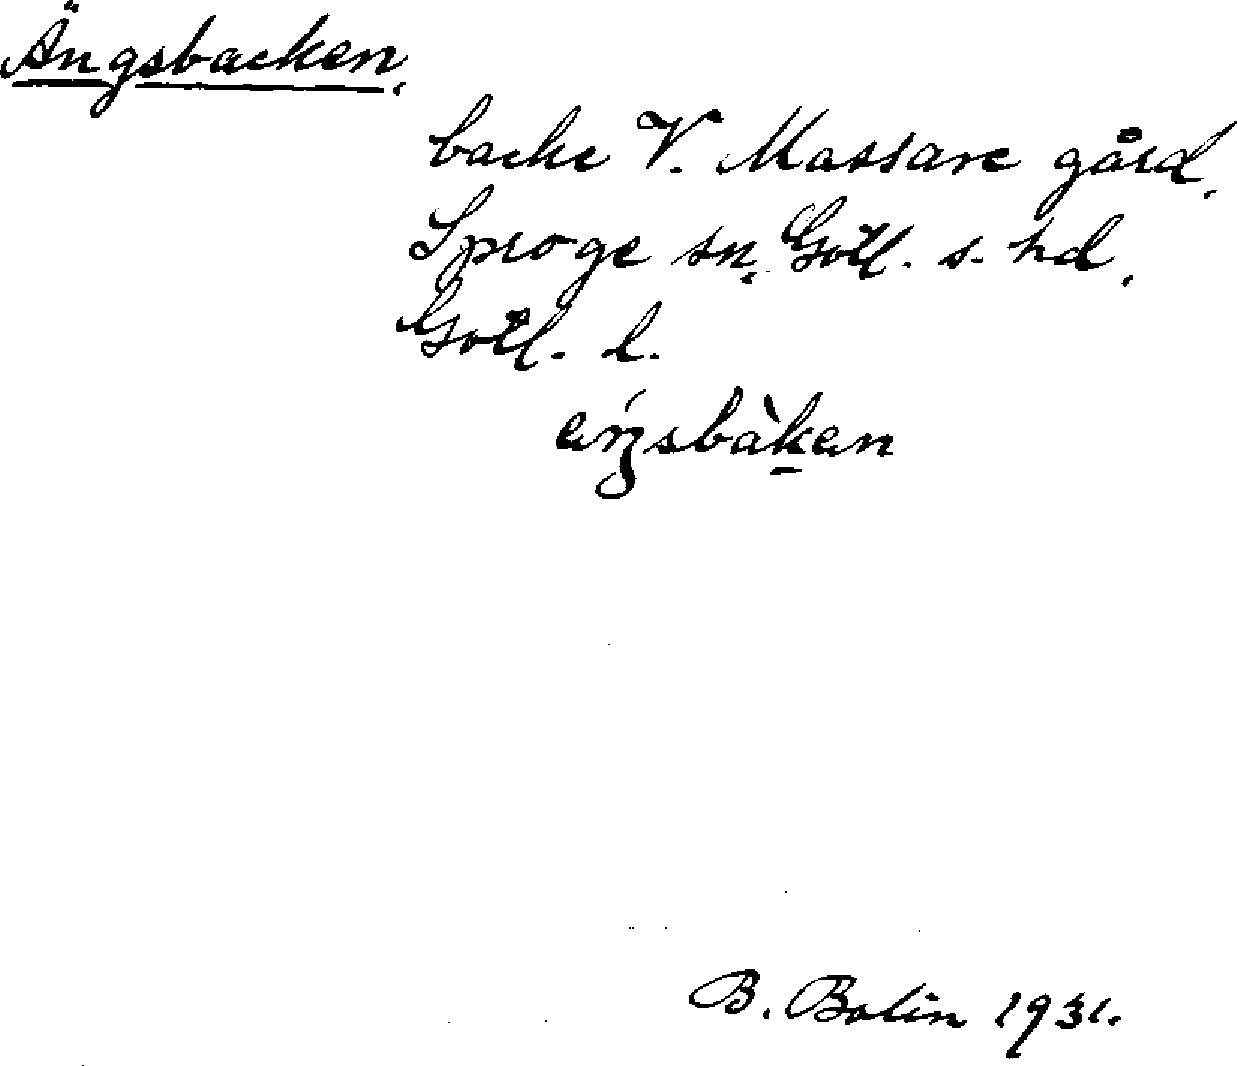 Ängsbacken.
backe V. Massare gård.
Sproge sn. Gotl. s. hd.
Gotl. l.
B. Bolin 1931.